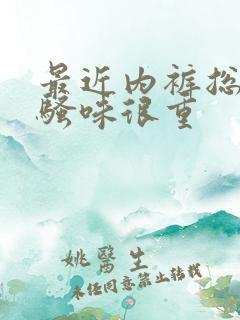 最近内裤总
骚味很重
姚醫生
未经同意禁止转载